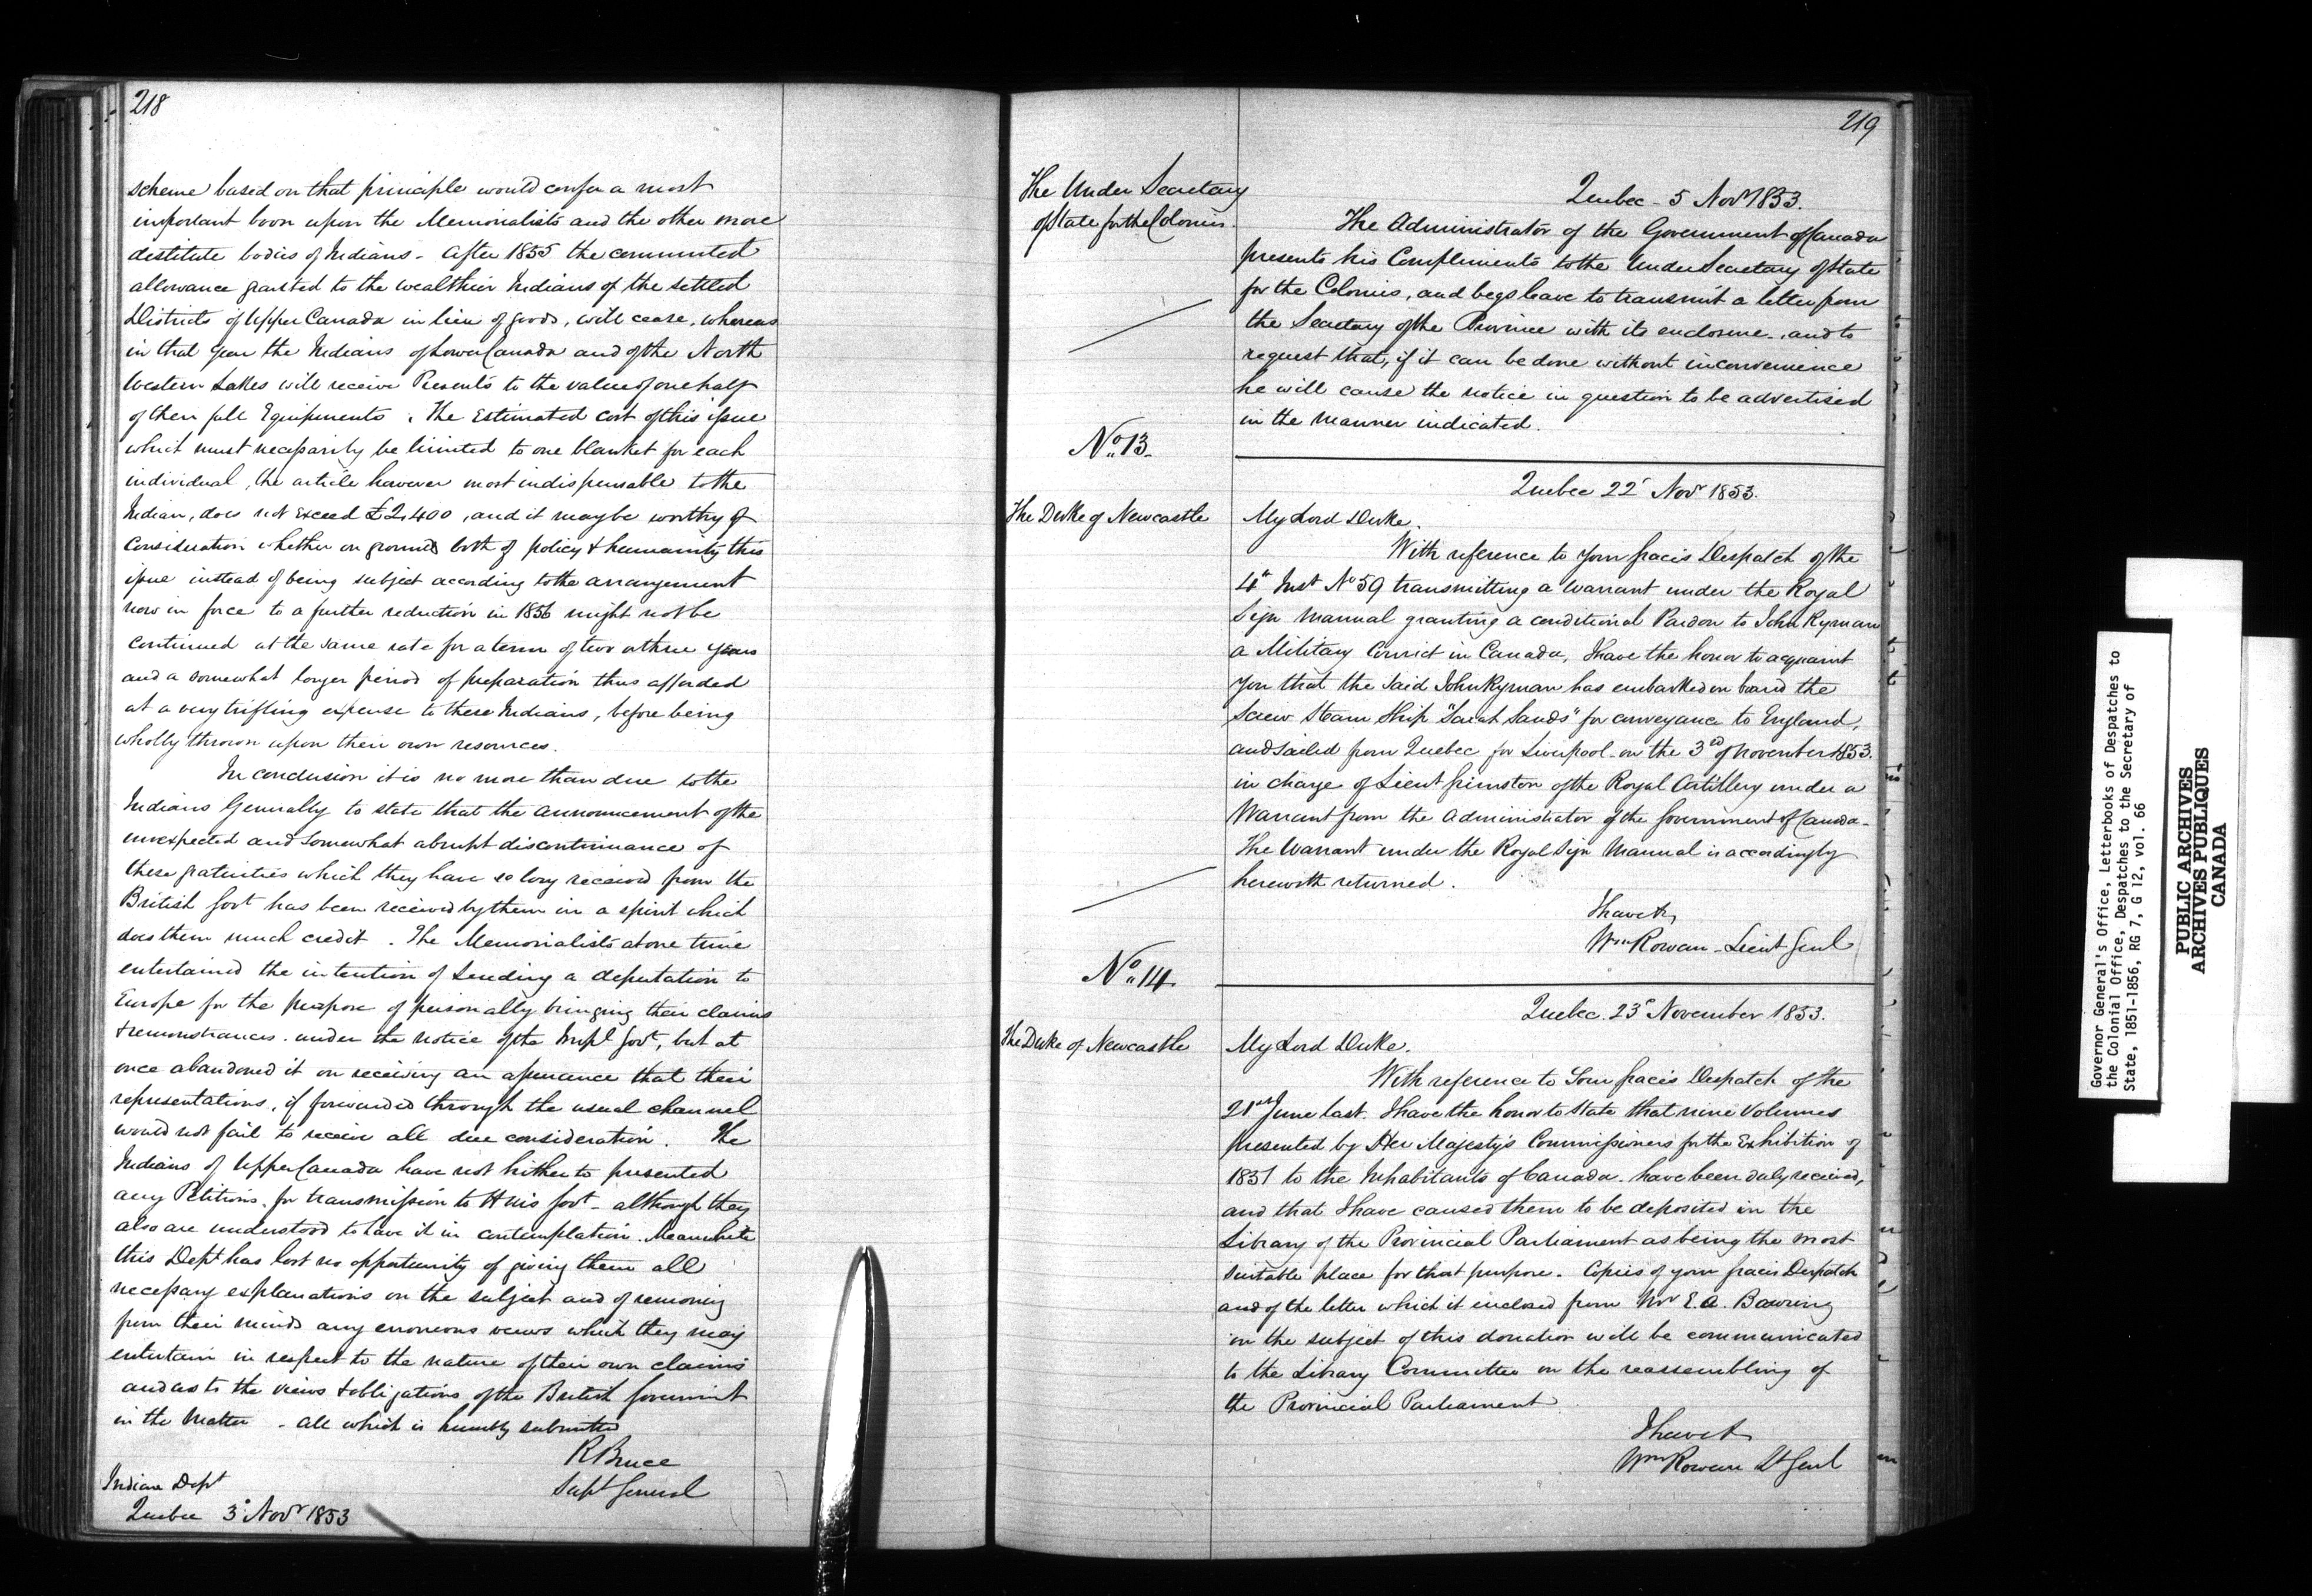 218
scheme based on that principle would confer a most
important boon upon the Memorialists and the other more
destitute bodies of Indians - After 1855 the commuted
allowance granted to the wealthier Indians of the settled
Districts of Upper Canada in lieu of goods, will cease, whereas
in that year the Indians of Lower Canada and of the North
Western Lakes will receive Presents to the value of one half
of their full Equipments. The Estimated cost of this issue
which must necessarily be limited to one blanket for each
individual, the article however most indispensable to the
Indian, does not exceed £2,400, and it may be worthy of
Consideration whether on grounds both of policy & humanity this
issue instead of being subject according to the arrangement
now in force to a further reduction in 1856 might not be
continued at the same rate for a term of two or three years
and a somewhat longer period of preparation thus afforded
at a very trifling expense to these Indians, before being
wholly thrown upon their own resources.
In conclusion it is no more than due to the
Indians Generally to state that the announcement of the
unexpected and somewhat abrupt discontinuance of
these gratuities which they have so long received from the
British Govt has been received by them in a spirit which
does them much credit. The Memorialists at one time
entertained the intention of sending a deputation to
Europe for the purpose of personally bringing their claims
& remonstrances under the notice of the Impl Govt, but at
once abandoned it on receiving an assurance that their
representations, if forwarded through the usual channel
would not fail to receive all due consideration. The
Indians of Upper Canada have not hitherto presented
any Petitions for transmission to H Ms Govt - although they
also are understood to have it in contemplation. Meanwhile
this Dept has lost no opportunity of giving them all
necessary explanations on the subject and of removing
from their minds any erroneous views which they may
entertain in respect to the nature of their own claims
and as to the views & obligations of the British Government
in the Matter - all which is humbly submitted
R Bruce
Supt General
Indian Dept
Quebec 3d Novr 1853
219
The Under Secretary
of State for the Colonies.
Quebec - 5 Novr 1853.
The Administrator of the Government of Canada
presents his Compliments to the Under Secretary of State
for the Colonies, and begs leave to transmit a letter from
the Secretary of the Province with its enclosure, and to
request that, if it can be done without inconvenience
he will cause the notice in question to be advertised
in the manner indicated.
No. 13.
Quebec 22d Novr 1853.
The Duke of Newcastle
My Lord Duke.
With reference to your Graces Despatch of the
4th Inst No 59 transmitting a Warrant under the Royal
Sign Manual granting a conditional Pardon to John Ryman
a Military Convict in Canada, I have the honor to acquaint
you that the said John Ryman has embarked on board the
Screw Steam Ship "Sarah Sands" for conveyance to England,
and sailed from Quebec for Liverpool on the 3rd of November 1853.
in charge of Lieut Grimston of the Royal Artillery under a
Warrant from the Administrator of the Government of Canada -
The Warrant under the Royal Sign Manual is accordingly
herewith returned.
I have &c
Wm Rowan - Lieut Genl
No. 14.
Quebec. 23d November 1853.
The Duke of Newcastle
My Lord Duke.
With reference to Your Graces Despatch of the
21st June last. I have the honor to State that nine Volumes
presented by Her Majesty's Commissioners for the Exhibition of
1851 to the Inhabitants of Canada have been duly received,
and that I have caused them to be deposited in the
Library of the Provincial Parliament as being the most
suitable place for that purpose. Copies of your Graces Despatch
and of the letter which it enclosed from Mr E. A. Bowring
on the subject of this donation will be communicated
to the Library Committee on the reassembling of
the Provincial Parliament
I have &
Wm Rowan Lt Genl
Governor General's Office, Letterbooks of Despatches to
the Colonial Office, Despatches to the Secretary of
State, 1851-1856, RG 7, G 12, vol. 66
PUBLIC ARCHIVES
ARCHIVES PUBLIQUES
CANADA